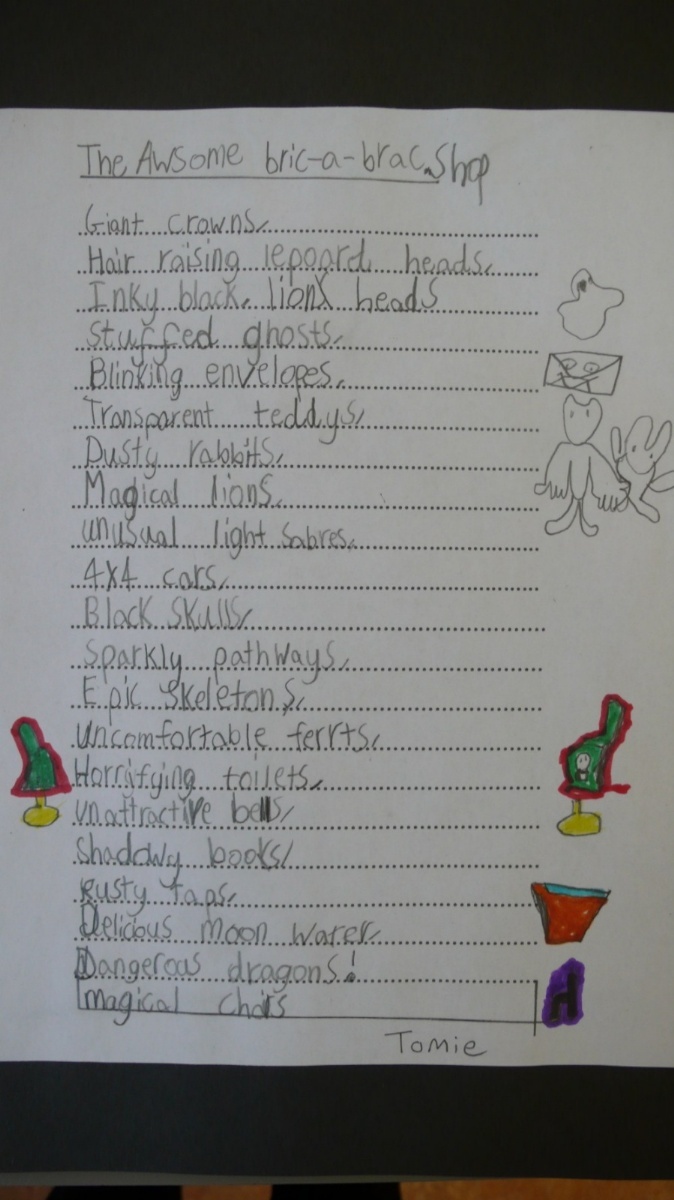 The Awsome bric-a-brac Shop
Giant crowns,
Hair raising lepoard heads,
Inky black, lion heads
Stuffed ghosts,
Blinking envelopes,
Transparent teddys,
Dusty rabbits,
Magical lions,
unusual light sabres,
4x4 cars,
Black skulls,
Sparkly pathways,
Epic skeletons,
Uncomfortable ferrts,
Horrifying toilets,
Unattractive bells,
Shadowy books,
Rusty taps,
Delicious moon water,
Dangerous dragons!
magical chairs
Tomie